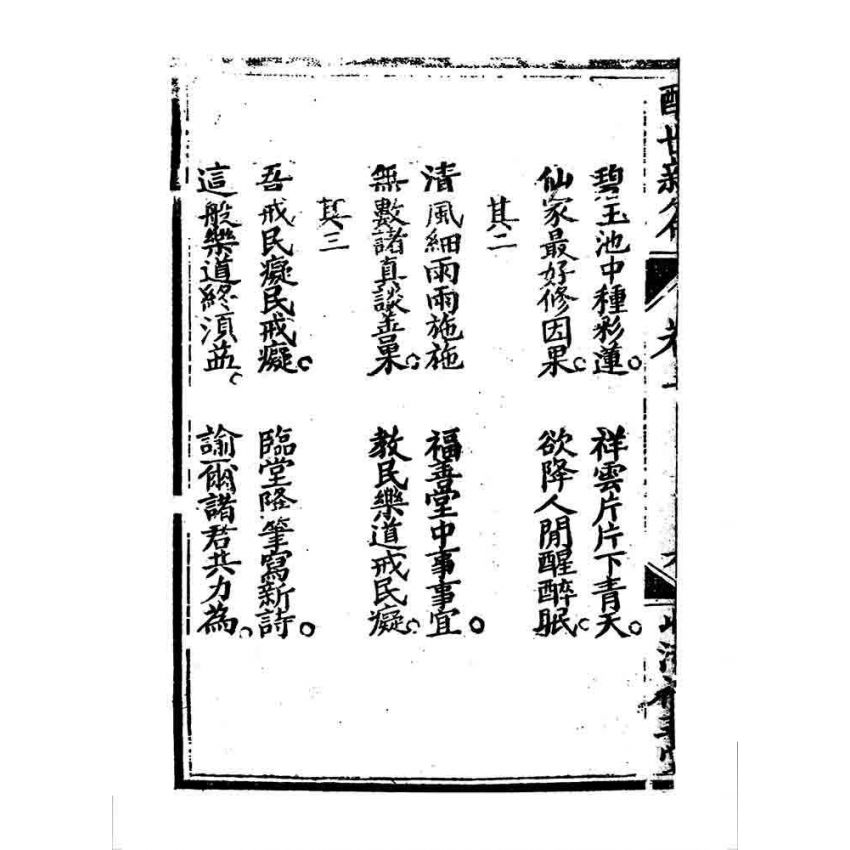 碧玉池中種彩蓮。祥雲片片下青天。
仙家最好修因果。欲降人間醒醉眠。
其二
清風細雨雨施施 福善堂中事事宜。
無數諸真談善果。教民樂道戒民癡。
其三
吾戒民癡民戒癡。臨堂降筆寫新詩。
這般樂道終須益。諭爾諸君共力為。